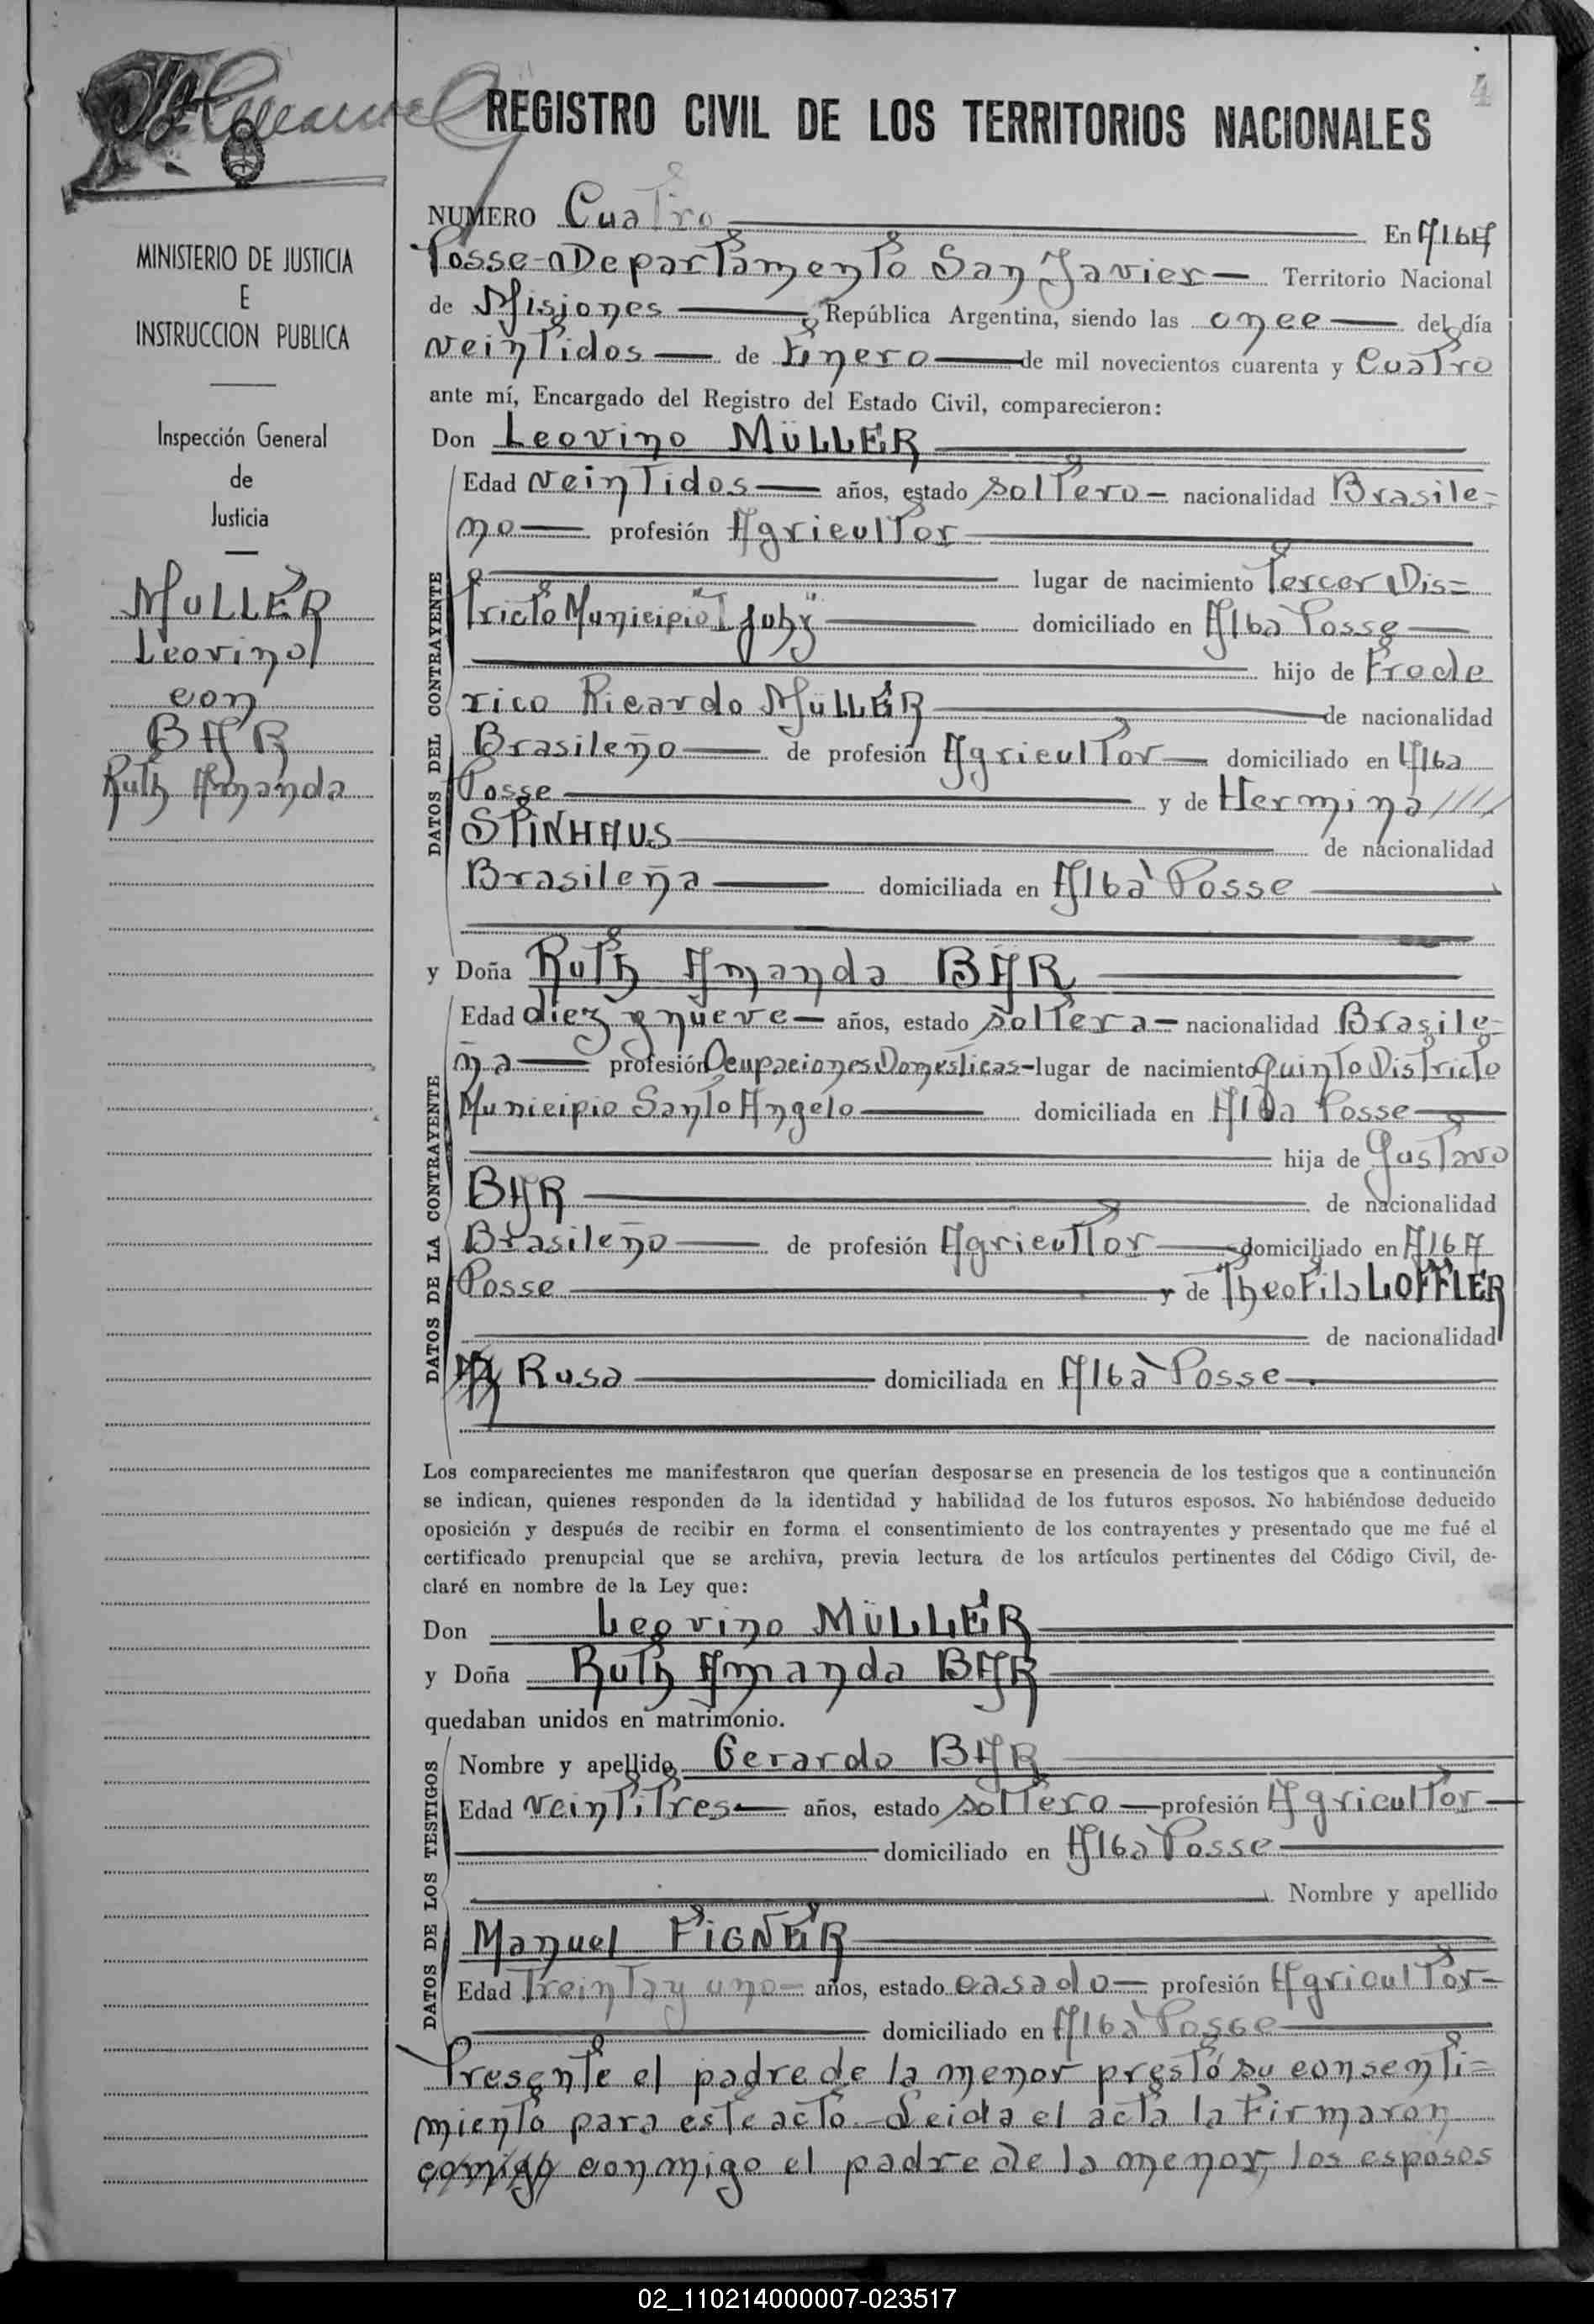 4
REGISTRO CIVIL DE LOS TERRITORIOS NACIONALES
MINISTERIO DE JUSTICIA
E
INSTRUCCION PUBLICA
Inspección General
de
Justicia
MULLER
Leovino
con
BAR
Ruth Amanda
NUMERO Cuatro En Alba
Posse-Departamento San Javier— Territorio Nacional
de Misiones — República Argentina, siendo las once — del día
veintidos — de Enero — de mil novecientos cuarenta y Cuatro
ante mí, Encargado del Registro del Estado Civil, comparecieron:
Don Leovino MÜLLER
DATOS DEL CONTRAYENTE
Edad veintidos — años, estado soltero — nacionalidad Brasile=
ño — profesión Agricultor
lugar de nacimiento Tercer Dis=
tricto Municipio "Ijuhy" — domiciliado en Alba Posse —
hijo de Frede
rico Ricardo MüLLER — de nacionalidad
Brasileño — de profesión Agricultor — domiciliado en Alba
Posse — y de Hermina ////
SPINHAUS — de nacionalidad
Brasileña — domiciliada en Alba Posse —
y Doña Ruth Amanda BAR
DATOS DE LA CONTRAYENTE
Edad diez y nueve — años, estado soltera — nacionalidad Brasile=
ña — profesión Ocupaciones Domésticas - lugar de nacimiento Quinto Districto
Municipio Santo Angelo — domiciliada en Alba Posse —
hija de Gustavo
BAR — de nacionalidad
Brasileño — de profesión Agricultor — domiciliado en Alba
Posse — y de Theofila LOFFLER
de nacionalidad
Rusa — domiciliada en Alba Posse —
Los comparecientes me manifestaron que querían desposarse en presencia de los testigos que a continuación
se indican, quienes responden de la identidad y habilidad de los futuros esposos. No habiéndose deducido
oposición y después de recibir en forma el consentimiento de los contrayentes y presentado que me fué el
certificado prenupcial que se archiva, previa lectura de los artículos pertinentes del Código Civil, de-
claré en nombre de la Ley que:
Don Leovino MÜLLER
y Doña Ruth Amanda BAR
quedaban unidos en matrimonio.
DATOS DE LOS TESTIGOS
Nombre y apellido Gerardo BAR
Edad veintitres — años, estado soltero — profesión Agricultor —
domiciliado en Alba Posse —
Nombre y apellido
Manuel FIGNER
Edad Treinta y uno — años, estado casado — profesión Agricultor —
domiciliado en Alba Posse —
Presente el padre de la menor prestó su consenti=
miento para este acto.-Leida el acta la firmaron
comigo conmigo el padre de la menor, los esposos
02_110214000007-023517